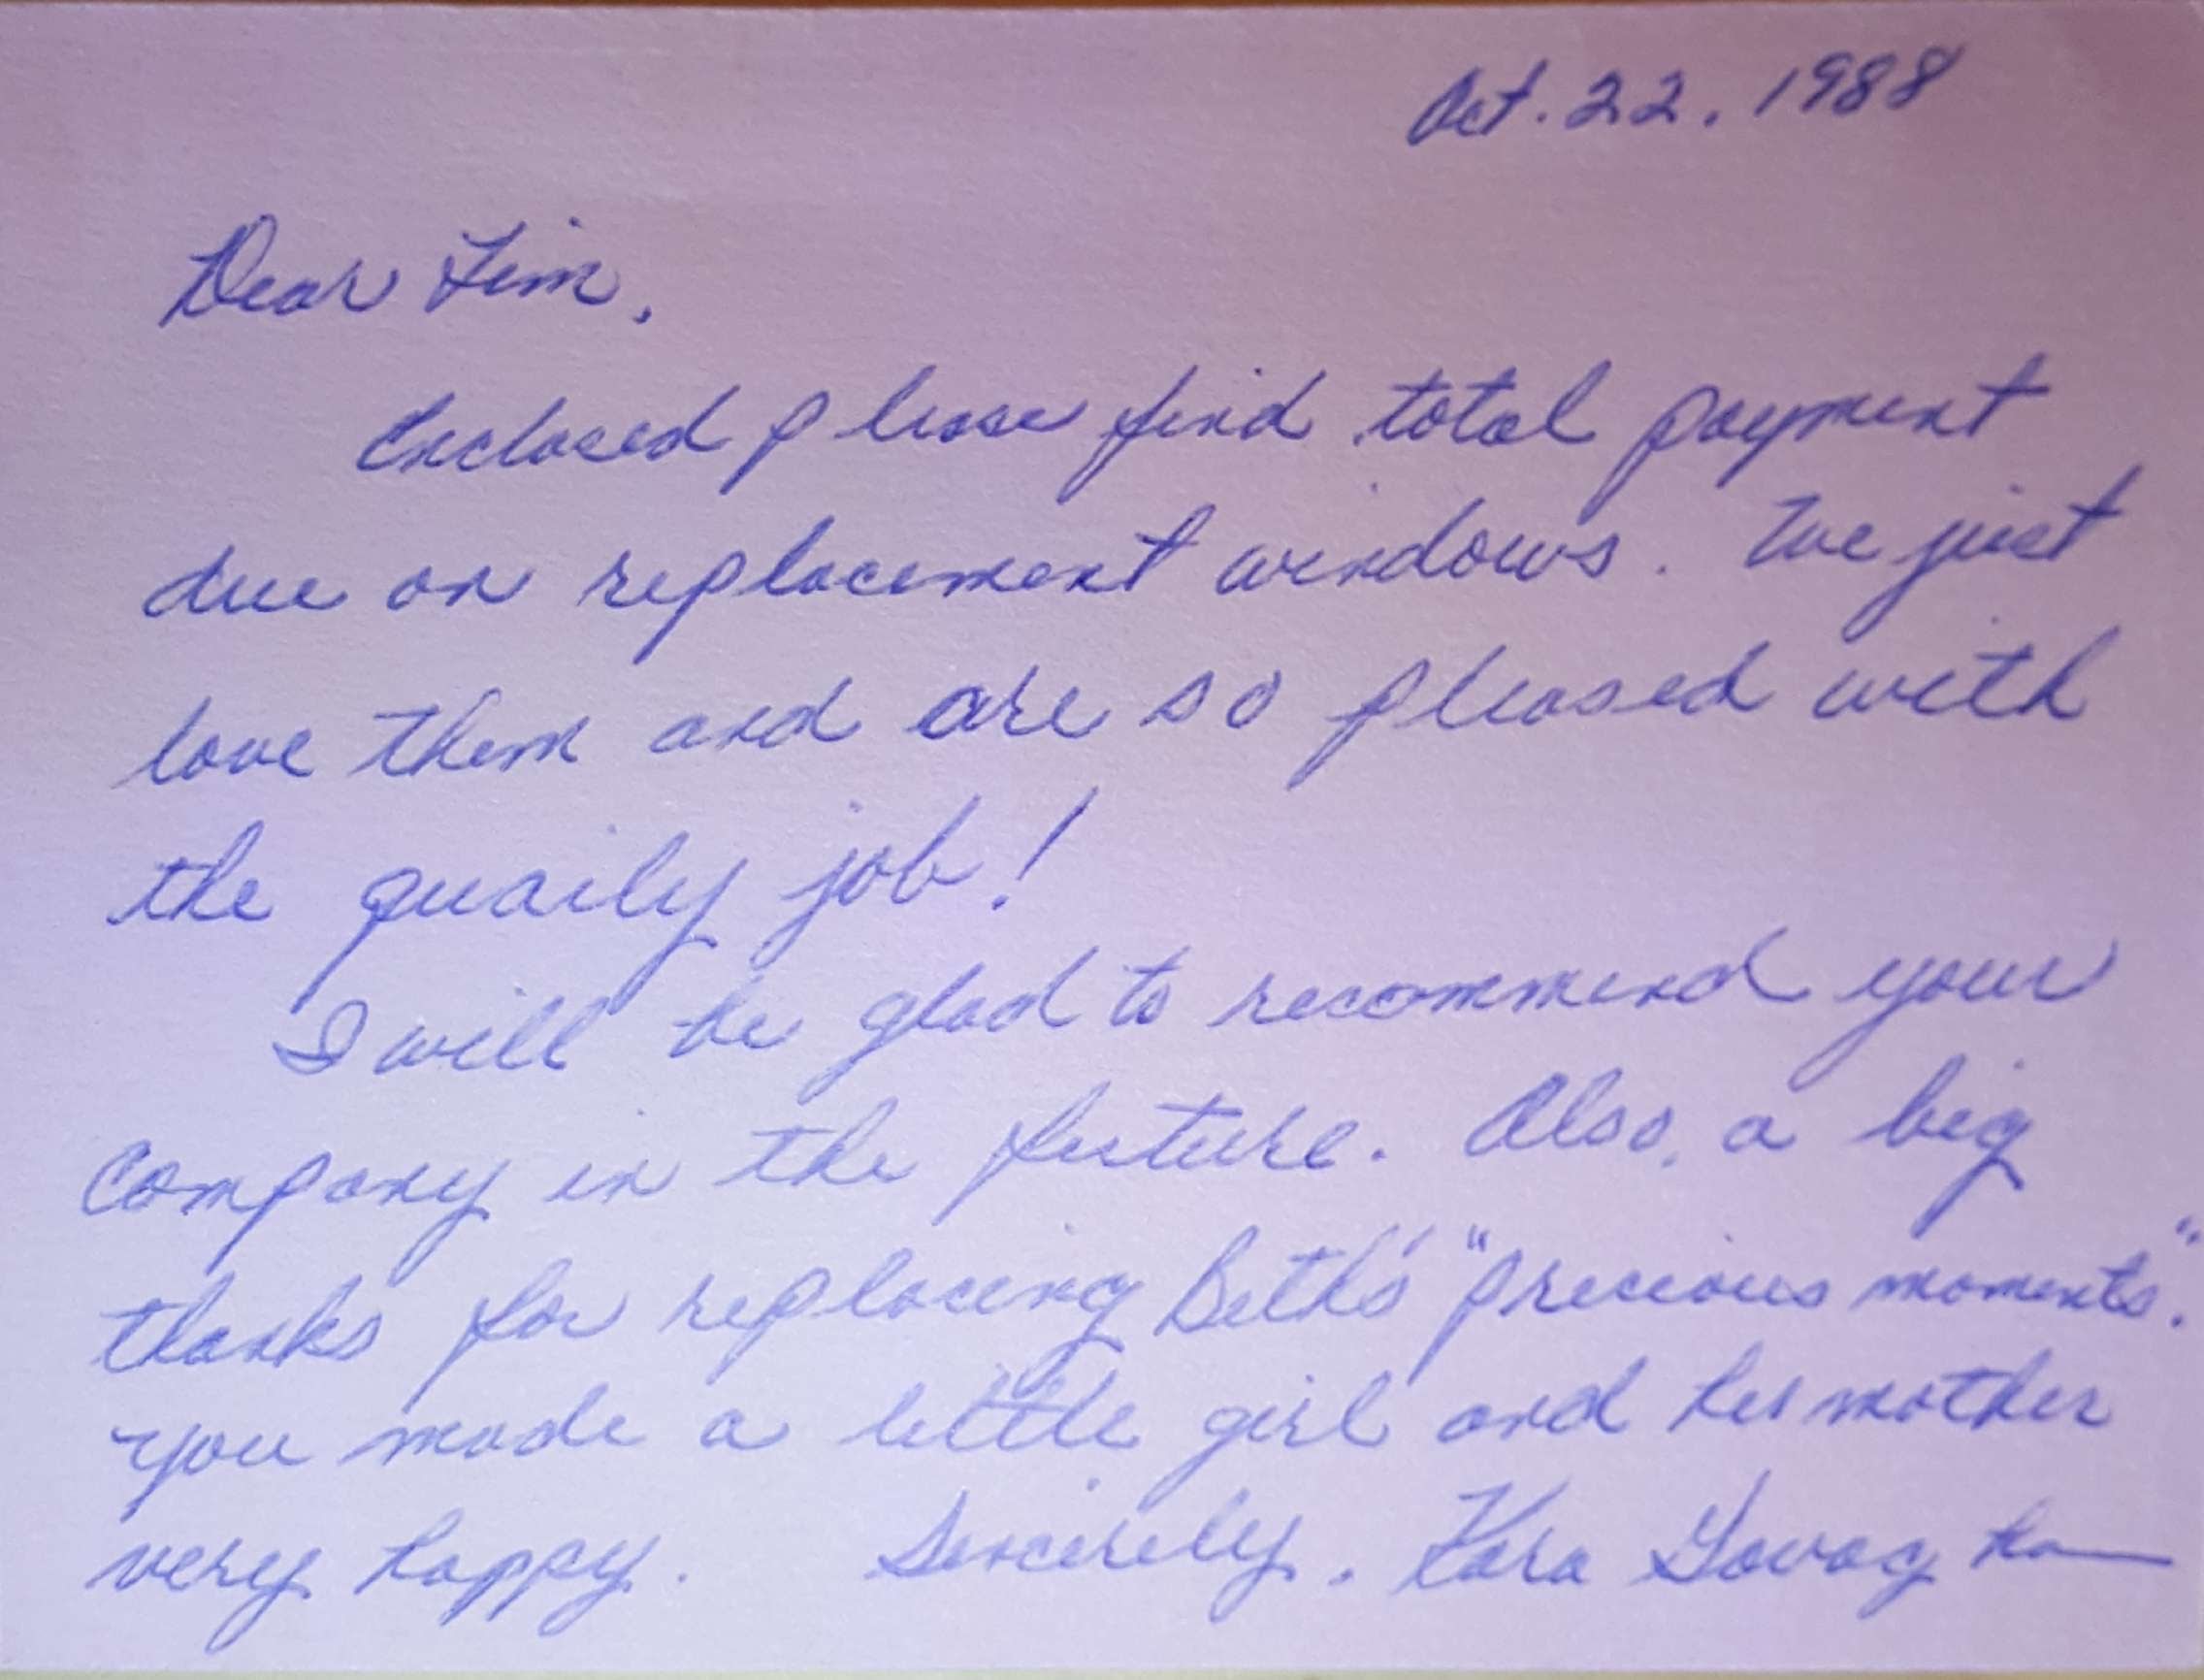 Oct. 22, 1988
Dear Jim,
Enclosed please find total payment
due on replacement windows. We just
love them and are so pleased with
the quaily job!
I will be glad to recommend your
Company in the future. Also, a big
thanks for replacing Beth's "precious moments".
You made a little girl and her mother
very happy. Sincerely, Kara